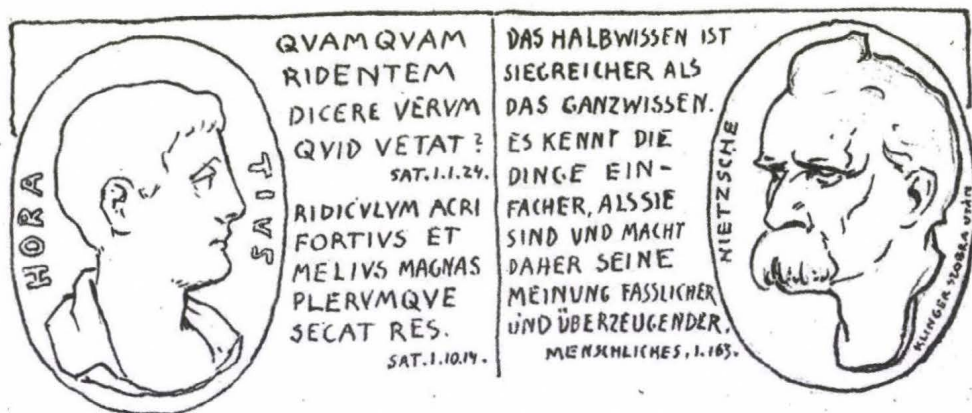 HORA
TIAS
QVAMQVAM
RIDENTEM
DICERE VERVM
QVID VETAT?
SAT.1.1.24.
RIDICVLVM ACRI
FORTIVS ET
MELIVS MAGNAS
PLERVMQVE
SECAT RES.
SAT.1.10.14.
DAS HALBWISSEN IST
SIEGREICHER ALS
DAS GANZWISSEN.
ES KENNT DIE
DINGE EIN-
FACHER, ALS SIE
SIND UND MACHT
DAHER SEINE
MEINUNG FASSLICHER
UND ÜBERZEUGENDER.
MENSCHLICHES, 1.163.
NIETZSCHE
KLINGER SZOBRA UTÁN